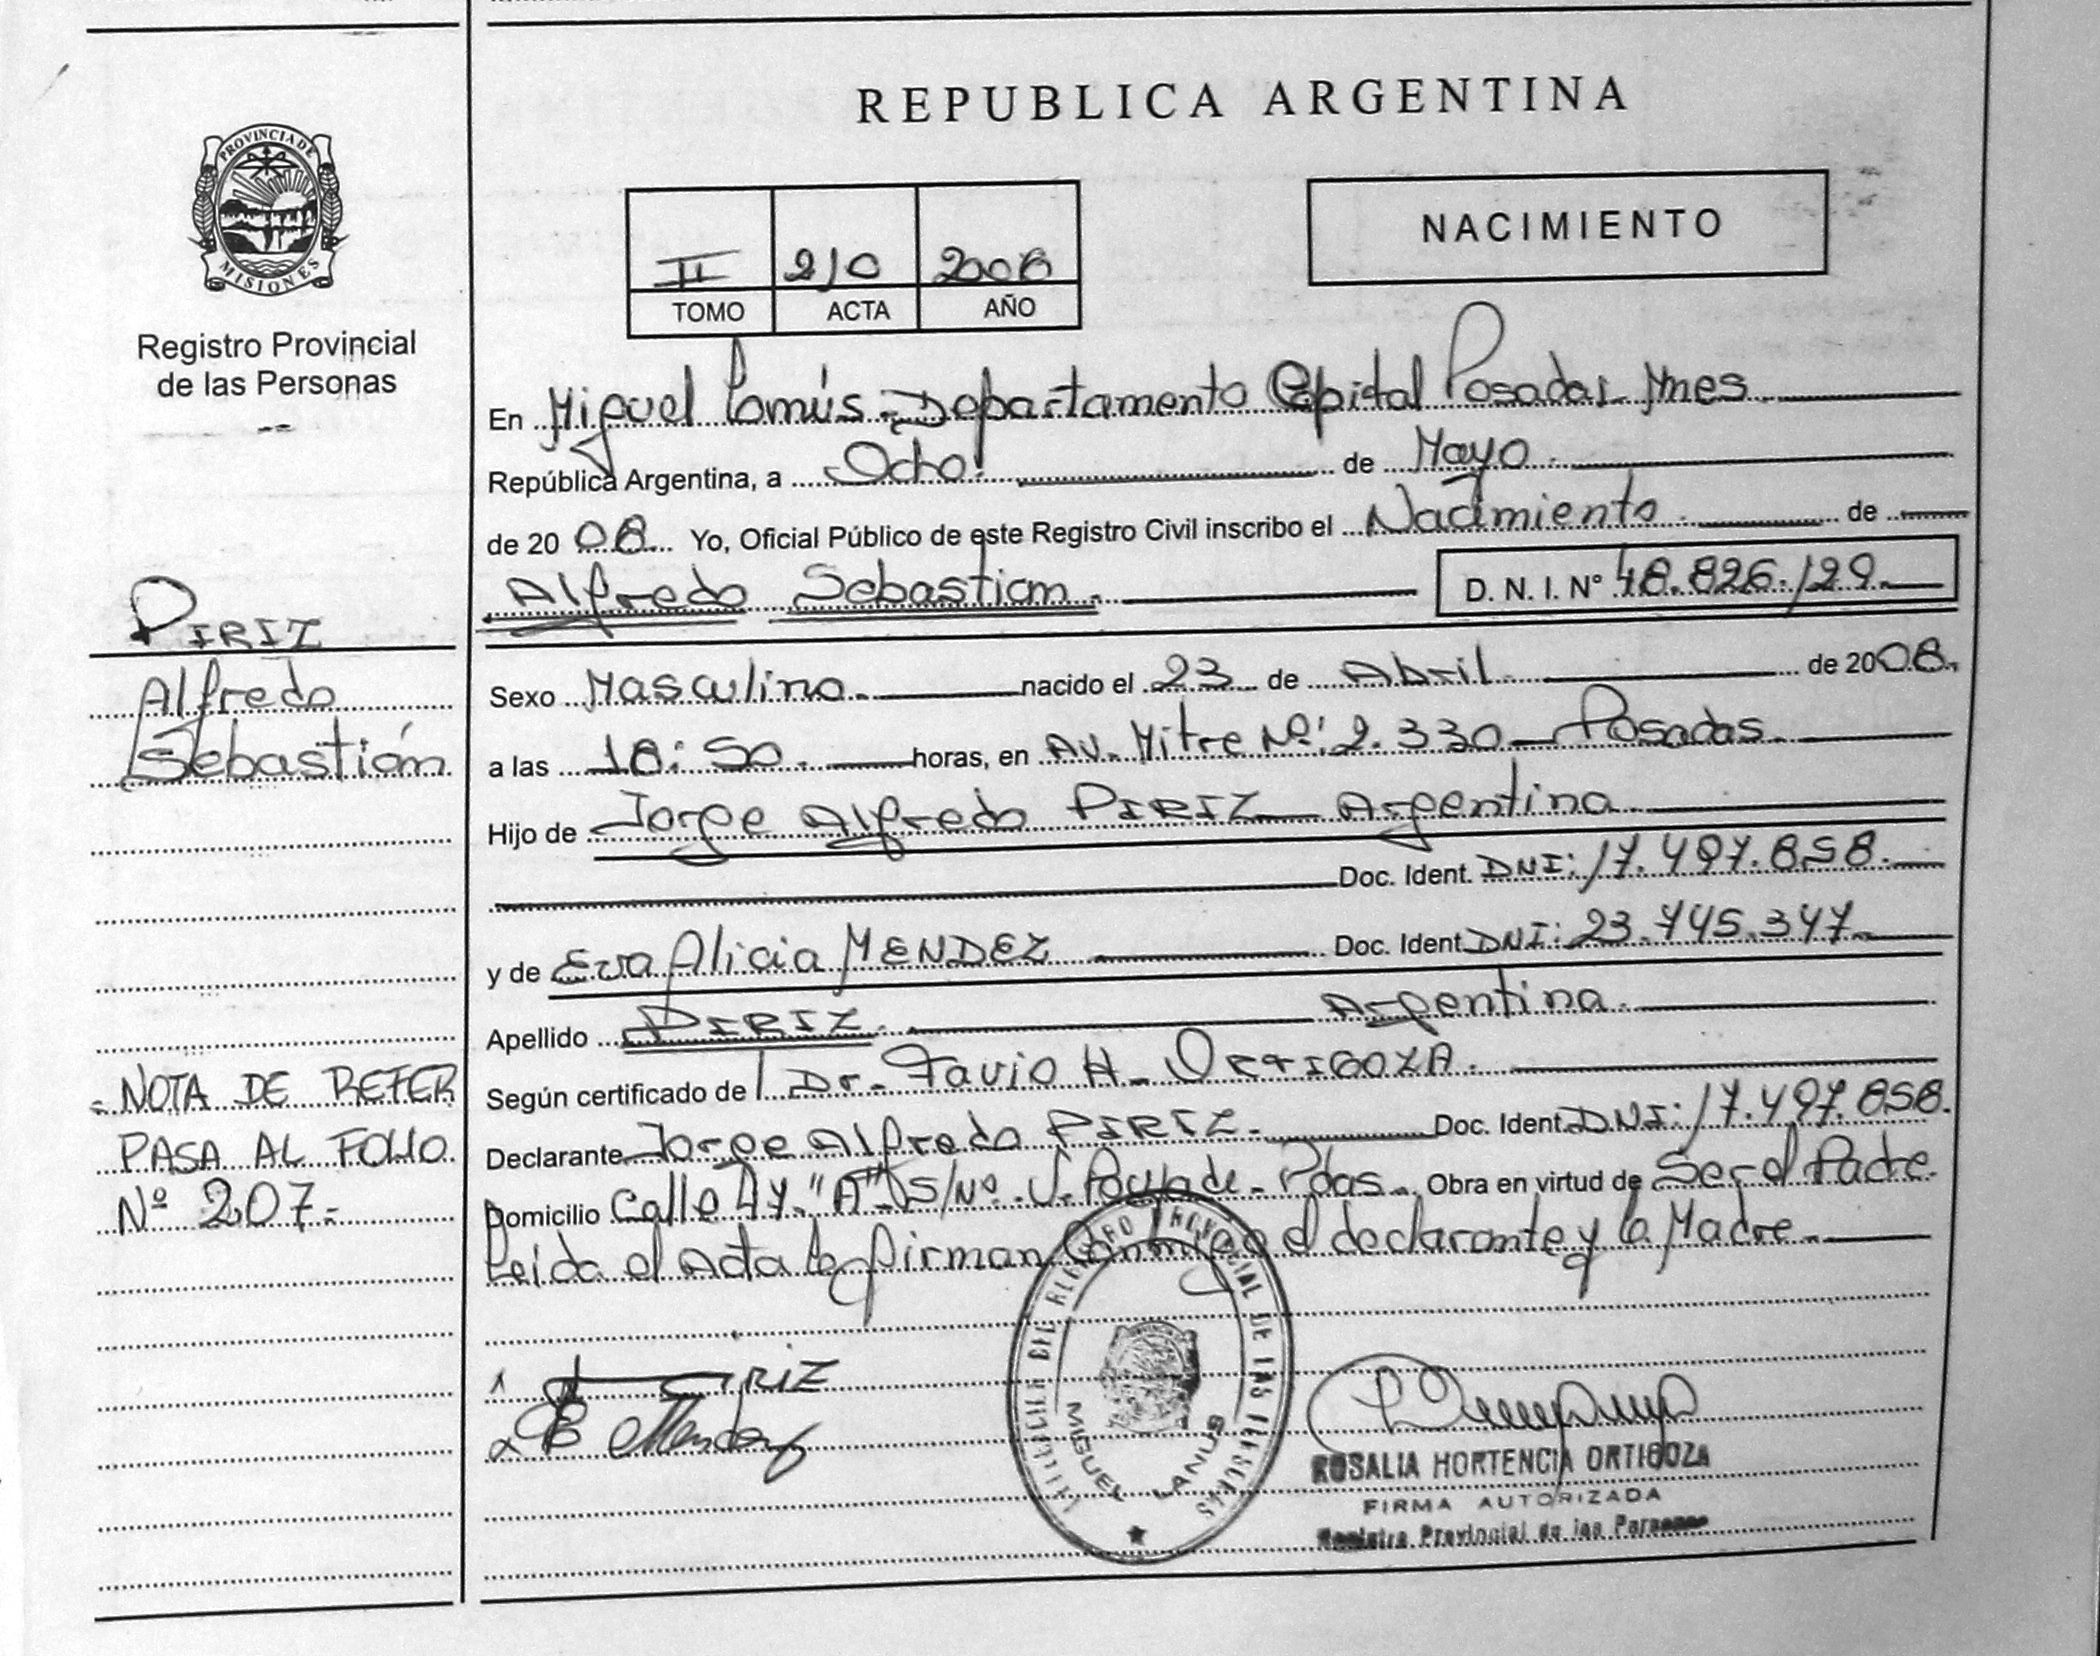 REPUBLICA ARGENTINA
PROVINCIA DE
MISIONES
Registro Provincial
de las Personas
NACIMIENTO
II 210 2008
TOMO ACTA AÑO
En Miguel Lanús - Departamento Capital Posadas Mnes
República Argentina, a Ocho. de Mayo.
de 2008. Yo, Oficial Público de este Registro Civil inscribo el Nacimiento. de
Alfredo Sebastian. D. N. I. N° 48.826.129.
PIRIZ
Alfredo
Sebastián
Sexo Masculino. nacido el 23 de Abril. de 2008.
a las 18:50. horas, en Av. Mitre Nº: 2.330 - Posadas.
Hijo de Jorge Alfredo PIRIZ - Argentina
Doc. Ident. DNI: 17.497.858.
y de Eva Alicia MENDEZ Doc. Ident. DNI: 23.745.347.
Apellido PIRIZ. Argentina.
Según certificado de Dr. Favio H. ORTIGOZA.
Declarante Jorge Alfredo PIRIZ. Doc. Ident. DNI: 17.497.858.
Domicilio Calle "A" S/Nº. Pdas. Obra en virtud de Ser el Padre.
Leída el Acta la firman conmigo el declarante y la Madre.
- NOTA DE REFER
PASA AL FOLIO
Nº 207-
PIRIZ
E Mendez
DEL REGISTRO PROVINCIAL DE LAS PERSONAS
MIGUEL LANUS
ROSALIA HORTENCIA ORTIGOZA
FIRMA AUTORIZADA
Registro Provincial de las Personas